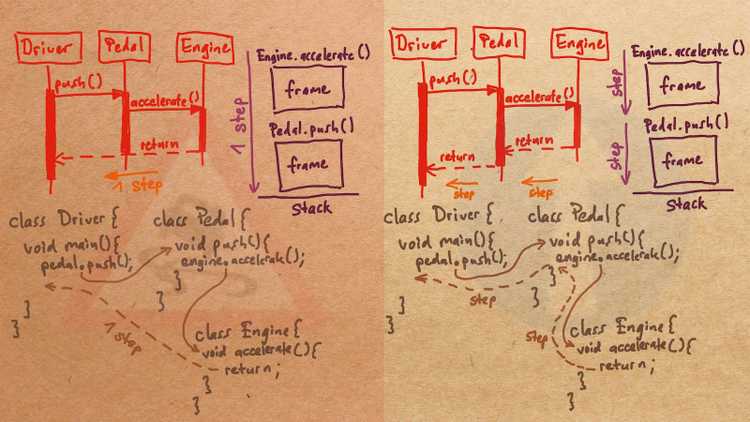 Driver Pedal Engine
push()
accelerate()
return
1 step
Engine.accelerate()
frame
Pedal.push()
frame
Stack
1 step
class Driver{
void main(){
pedal.push();
}
}
class Pedal{
void push(){
engine.accelerate();
}
}
1 step
class Engine{
void accelerate(){
return;
}
}
Driver Pedal Engine
push()
accelerate()
return
return
step
step
Engine.accelerate()
frame
Pedal.push()
frame
Stack
step
step
class Driver{
void main(){
pedal.push();
}
}
class Pedal{
void push(){
engine.accelerate();
}
}
step
step
class Engine{
void accelerate(){
return;
}
}